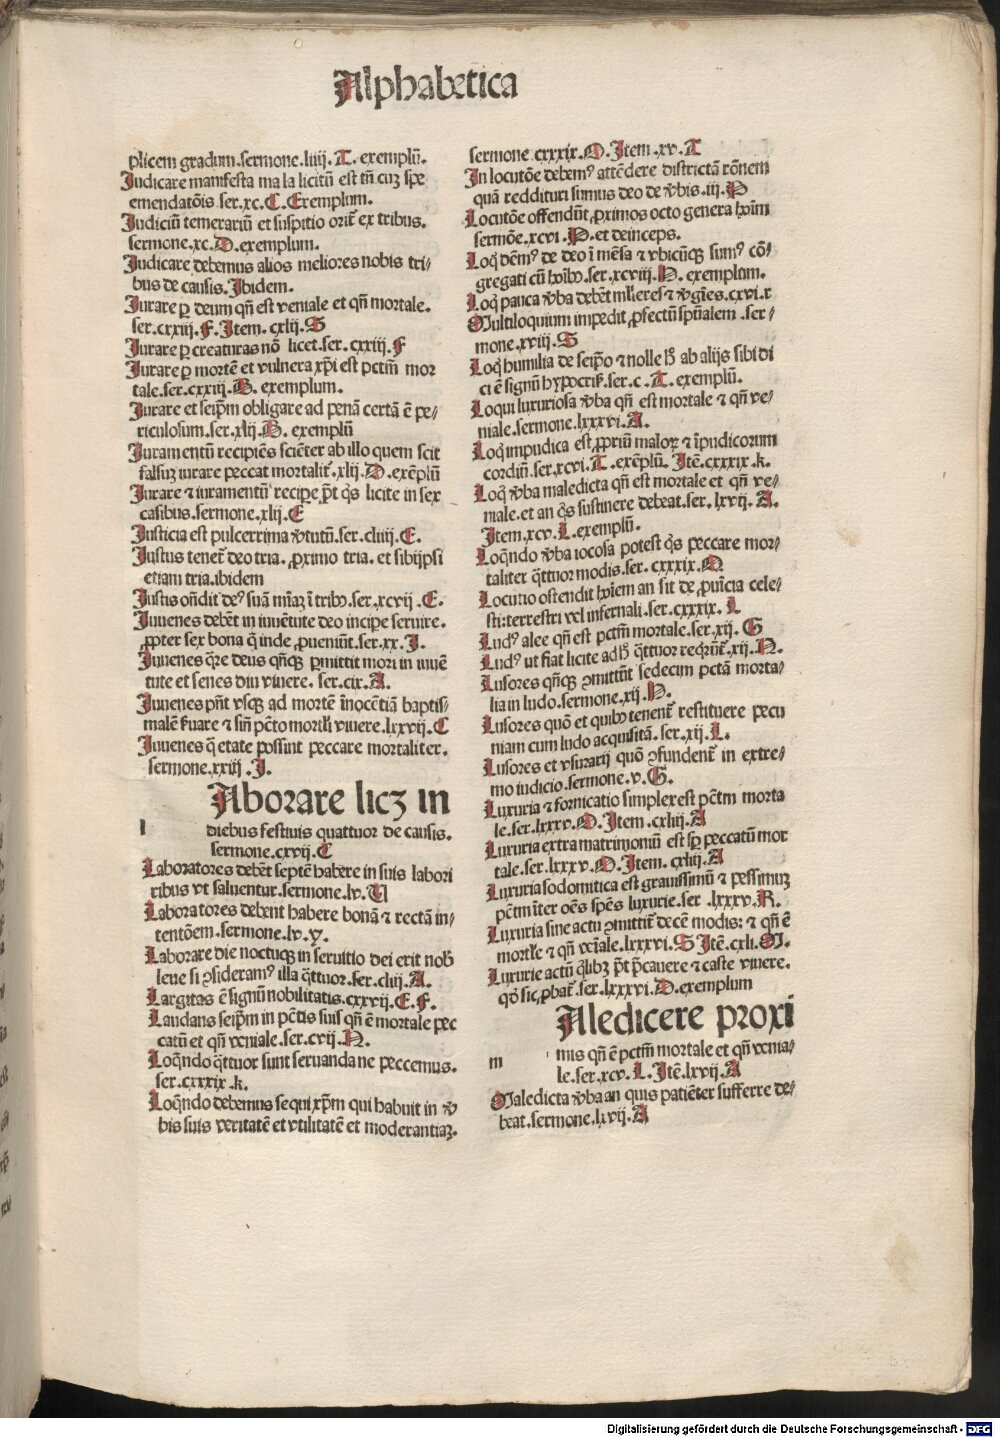 Alphabetica
plicem gradum.sermone.liiij.T. exemplū.
Judicare manifesta mala licitū est tñ cuȝ spe
emendatōis ser.xc.C.Exemplum.
Judiciū temerariū et suspitio orit᷑ ex tribus.
sermone.xc.D.exemplum.
Judicare debemus alios meliores nobis tri⸗
bus de causis. Ibidem.
Jurare ꝑ deum qñ est veniale et qñ mortale.
ser.cxxiij.F.Item.cxlij.S
Jurare ꝑ creaturas nō licet.ser.cxxiij.F
Jurare ꝑ mortē et vulnera xp̄i est pctm̄ mor
tale.ser.cxxiij.B. exemplum.
Jurare et seip̄m obligare ad penā certā ē pe⸗
riculosum.ser.xlij.B. exemplū
Juramentū recipiēs sciēter ab illo quem scit
falsuȝ iurare peccat mortalit᷑.xlij.D.exēplū
Jurare ⁊ iuramentū recipe p̄t q̇s licite in sex
casibus.sermone.xlij.E
Justicia est pulcerrima v̓tutū.ser.cliiij.E.
Justus tenet᷑ deo tria. ꝓximo tria. et sibijpsi
etiam tria.ibidem
Justis on̄dit deꝰ suā mīaȝ ī tribꝰ.ser.xcvij.E.
Juuenes debēt in iuuētute deo incipe seruire.
ꝓpter sex bona q̄ inde ꝓueniūt.ser.xx.J.
Juuenes q̄re deus qñqȝ ꝑmittit mori in iuuē
tute et senes diu viuere. ser.cix.A.
Juuenes pn̄t vsqȝ ad mortē īnocētiā baptis⸗
malē ẜuare ⁊ sin̄ pctō mortli viuere.lxxvij.C
Juuenes q̄ etate possint peccare mortaliter.
sermone.xxiij.J.
l
Aborare licȝ in
diebus festiuis quattuor de causis.
sermone.cxvij.C
Laboratores debēt septē habere in suis labori
ribus vt saluentur.sermone.lv.U
Laboratores debent habere bonā ⁊ rectā in⸗
tentōem.sermone.lv.y.
Laborare die noctuqȝ in seruitio dei erit nob̄
leue si ꝯsideramꝰ illa q̄ttuor.ser.cliij.A.
Largitas ē signū nobilitatis.cxxvij.E.F.
Laudans seip̄m in pctīs suis qñ ē mortale pec
catū et qñ veniale.ser.cvij.N.
Loq̄ndo q̄ttuor sunt seruanda ne peccemus.
ser.cxxxix.k.
Loq̄ndo debemus sequi xp̄m qui habuit in v̓
bis suis veritatē et vtilitatē et moderantiaȝ.
sermone.cxxxix.O.Item.xv.T
In locutōe debemꝰ attēdere districtā rōnem
quā reddituri sumus deo de v̓bis.iij.P
Locutōe offendūt ꝓximos octo genera hoīm
sermōe.xcvi.P.et deinceps.
Loq̇ dēmꝰ de deo ī mēsa ⁊ vbicūqȝ sumꝰ cō⸗
gregati cū hoībꝰ.ser.xcviij.N. exemplum.
Loq̇ pauca v̓ba debēt mlieres ⁊ v̓gīes.cxvi.r
Multiloquium impedit ꝓfectū spūalem.ser⸗
mone.xviij.S
Loq̇ humilia de seip̄o ⁊ nolle hͦ ab alijs sibi di
ci ē signū hypocris̄.ser.c.T. exemplū.
Loqui luxuriosa v̓ba qñ est mortale ⁊ qñ ve⸗
niale.sermone.lxxxvi.A.
Loq̇ impudica est ꝓpriū maloꝝ ⁊ īpudicorum
cordiū.ser.xcvi.T.exēplū. Itē.cxxxix.k.
Loq̇ v̓ba maledicta qñ est mortale et qñ ve⸗
niale.et an q̇s sustinere debeat.ser.lxvij.A.
Item.xcv.L.exemplū.
Loq̄ndo v̓ba iocosa potest q̇s peccare mor⸗
taliter q̄ttuor modis.ser.cxxxix.O
Locutio ostendit hoīem an sit de ꝓuīcia cele⸗
sti:terrestri vel infernali.ser.cxxxix. L
Ludꝰ alee qñ est pctm̄ mortale.ser.xij.G
Ludꝰ ut fiat licite ad hͦ q̄ttuor reqrūt᷑.xij.N.
Lusores qñqȝ ꝯmittūt sedecim pctā morta⸗
lia in ludo.sermone.xij.P.
Lusores quō et quibꝰ tenent᷑ restituere pecu
niam cum ludo acquisitā.ser.xij.L.
Lusores et vsurarij quō ꝯfundent᷑ in extre⸗
mo iudicio.sermone.v.G.
Luxuria ⁊ fornicatio simplex est pctm̄ morta
le.ser.lxxxv.O.Item.cxliij.A
Luxuria extra matrimoniū est sp̄ peccatū mor
tale.ser.lxxxv.O.Item.cxliij.A
Luxuria sodomitica est grauissimū ⁊ pessimuȝ
pctm̄ īter oēs spēs luxurie.ser.lxxxv.R.
Luxuria sine actu ꝯmittit᷑ decē modis: ⁊ qñ ē
mortle ⁊ qñ vēiale.lxxxvi.S Itē.cxli.M.
Luxurie actū q̄libȝ p̄t p̄cauere ⁊ caste viuere.
qd̓ sic ꝓbat᷑.ser.lxxxvi.D.exemplum
m
Aledicere proxi
mis qñ ē pctm̄ mortale et qñ venia⸗
le.ser.xcv.L.Itē.lxvij.A
Maledicta v̓ba an quis patiēter sufferre de⸗
beat.sermone.lxvij.A
Digitalisierung gefördert durch die Deutsche Forschungsgemeinschaft - DFG